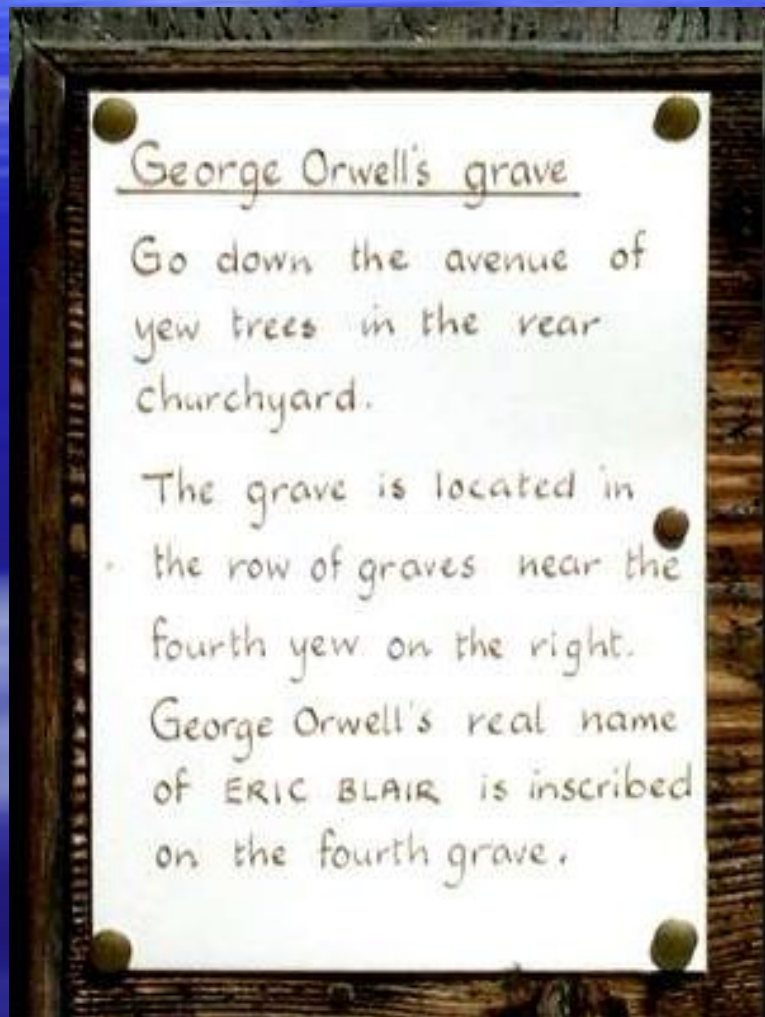 George Orwell's grave
Go down the avenue of
yew trees in the rear
churchyard.
The grave is located in
the row of graves near the
fourth yew on the right.
George Orwell's real name
of ERIC BLAIR is inscribed
on the fourth grave.